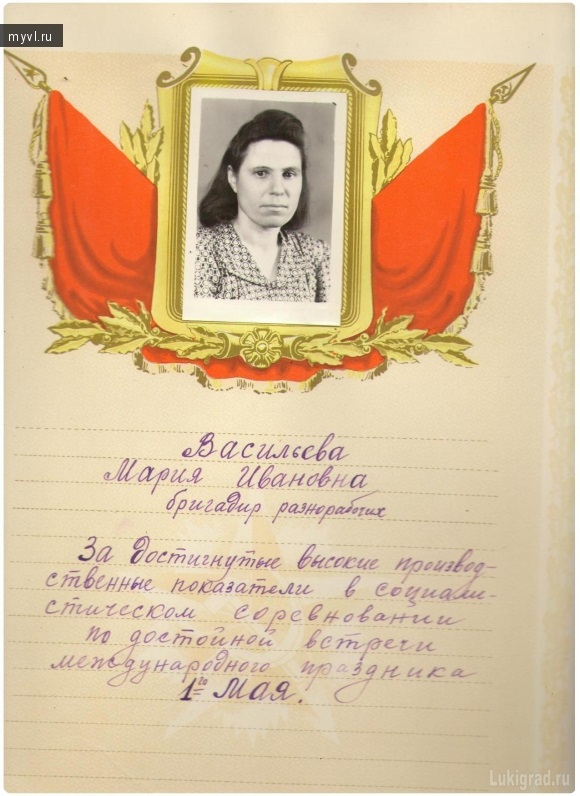 myvl.ru
Васильева
Мария Ивановна
бригадир разнорабочих
За достигнутые высокие производ-
ственные показатели в социали-
стическом соревновании
по достойной встречи
международного праздника
1го Мая.
Lukigrad.ru